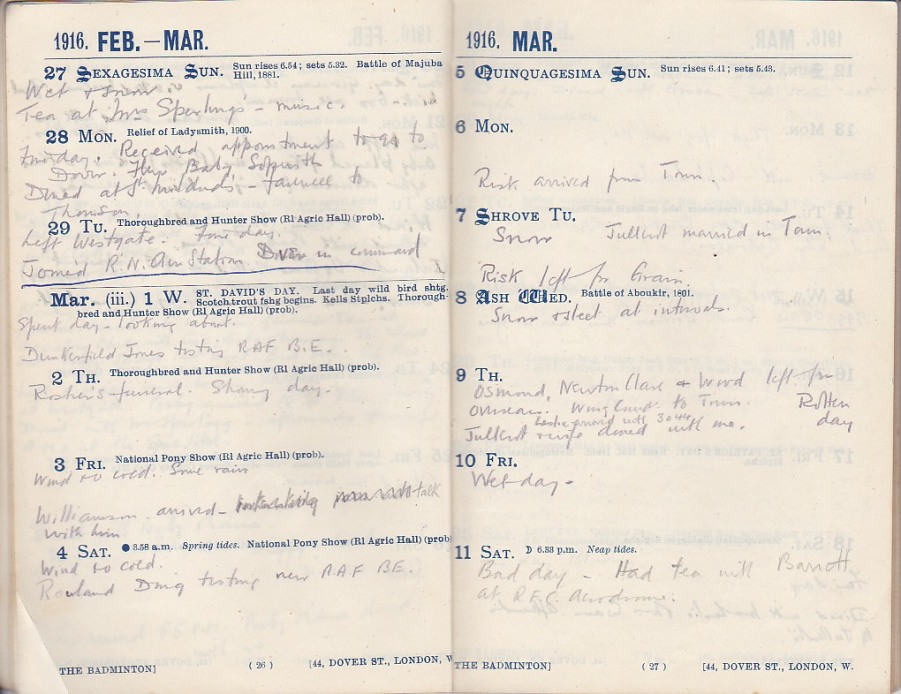 1916. FEB.—MAR.
27 SEXAGESIMA SUN. Sun rises 6.54; sets 5.32. Battle of Majuba
Hill, 1881.
Wet & Snow
Tea at Mrs Sperlings' - music
28 MON. Relief of Ladysmith, 1900.
Fine day. Received appointment to go to
Dover. Flew Baby Sopwith
Dined at St Mildreds - farewell to
Thomson.
29 TU. Thoroughbred and Hunter Show (Rl Agric Hall) (prob).
Left Westgate. Fine day.
Joined R.N. Air Station Dover in command
Mar. (iii.) 1 W. ST. DAVID'S DAY. Last day wild bird shtg.
Scotch.trout fshg begins. Kells Stplchs. Thorough-
bred and Hunter Show (Rl Agric Hall) (prob).
Spent day - looking about.
Jones testing RAF B.E.
2 TH. Thoroughbred and Hunter Show (Rl Agric Hall) (prob).
Rosher's funeral. day.
3 FRI. National Pony Show (Rl Agric Hall) (prob).
Wind & cold. Some rain
Williamson arrived - talk
with him
4 SAT. 3.58 a.m. Spring tides. National Pony Show (Rl Agric Hall) (prob)
Wind & cold.
Rowland Ding testing new RAF BE.
THE BADMINTON] ( 26 ) [44, DOVER ST., LONDON, W
1916. MAR.
5 QUINQUAGESIMA SUN. Sun rises 6.41; sets 5.43.
6 MON.
Risk arrived from Town.
7 SHROVE TU.
Snow married in Town.
Risk left for Grain.
8 ASH WED. Battle of Aboukir, 1801.
Snow & sleet at intervals.
9 TH.
Osmond, Newton Clare & Wood left for
overseas. to Town. Rotten
day
with 3
dined with me.
10 FRI.
Wet day -
11 SAT. 6.33 p.m. Neap tides.
Bad day - Had tea with Barratt
at R.F.C. Aerodrome.
THE BADMINTON] ( 27 ) [44, DOVER ST., LONDON, W.